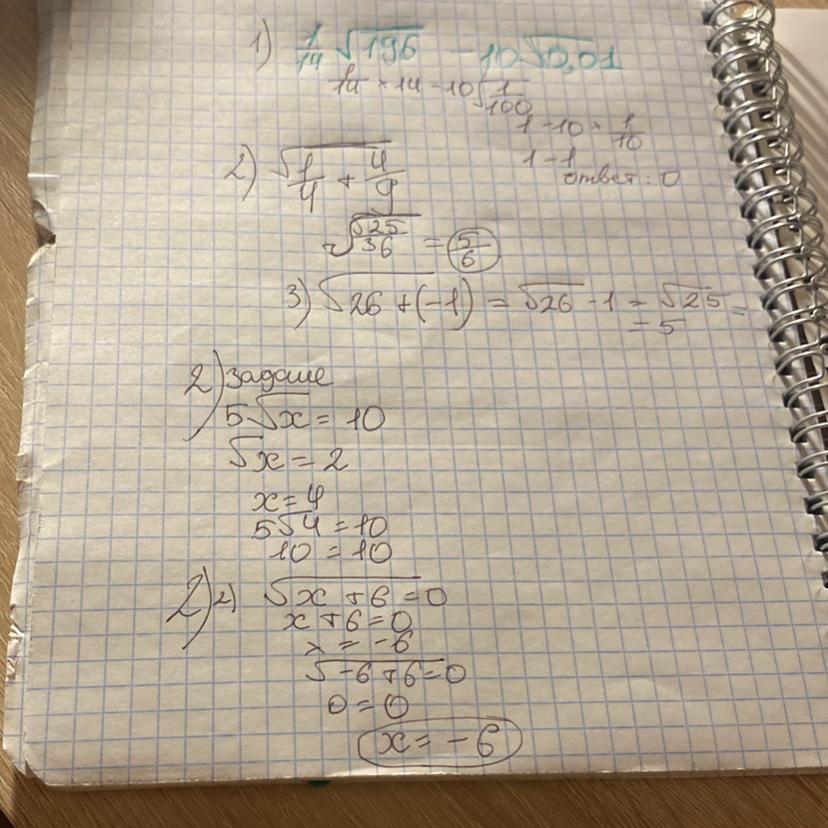 1) 1/14 √196 - 10√0,01
1/14 × 14 - 10√1/100
1 - 10 × 1/10
1 - 1
ответ: 0
2) √1/4 + 4/9
√25/36 = 5/6
3) √26 + (-1) = √26 - 1 = √25 =
= 5
2) задание
5√x = 10
√x = 2
x = 4
5√4 = 10
10 = 10
2) 2) √x + 6 = 0
x + 6 = 0
x = -6
√-6 + 6 = 0
0 = 0
x = -6